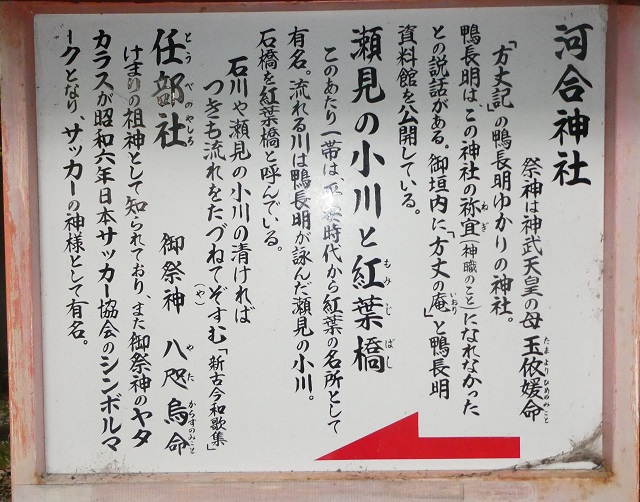 河合神社
祭神は神武天皇の母 玉依媛命
たまよりひめのみこと
「方丈記」の鴨長明ゆかりの神社。
鴨長明は、この神社の祢宜(神職のこと)になれなかった
ねぎ
との説話がある。御垣内に「方丈の庵」と鴨長明
いおり
資料館を公開している。
瀬見の小川と紅葉橋
もみじばし
このあたり一帯は、平安時代から紅葉の名所として
有名。流れる川は鴨長明が詠んだ瀬見の小川。
石橋を紅葉橋と呼んでいる。
石川や瀬見の小川の清ければ
つきも流れをたづねてぞすむ「新古今和歌集」
(や)
任部社 御祭神 八咫烏命
とうべのやしろ
やたからすのみこと
けまりの祖神として知られており、また御祭神のヤタ
カラスが昭和六年日本サッカー協会のシンボルマ
ークとなり、サッカーの神様として有名。